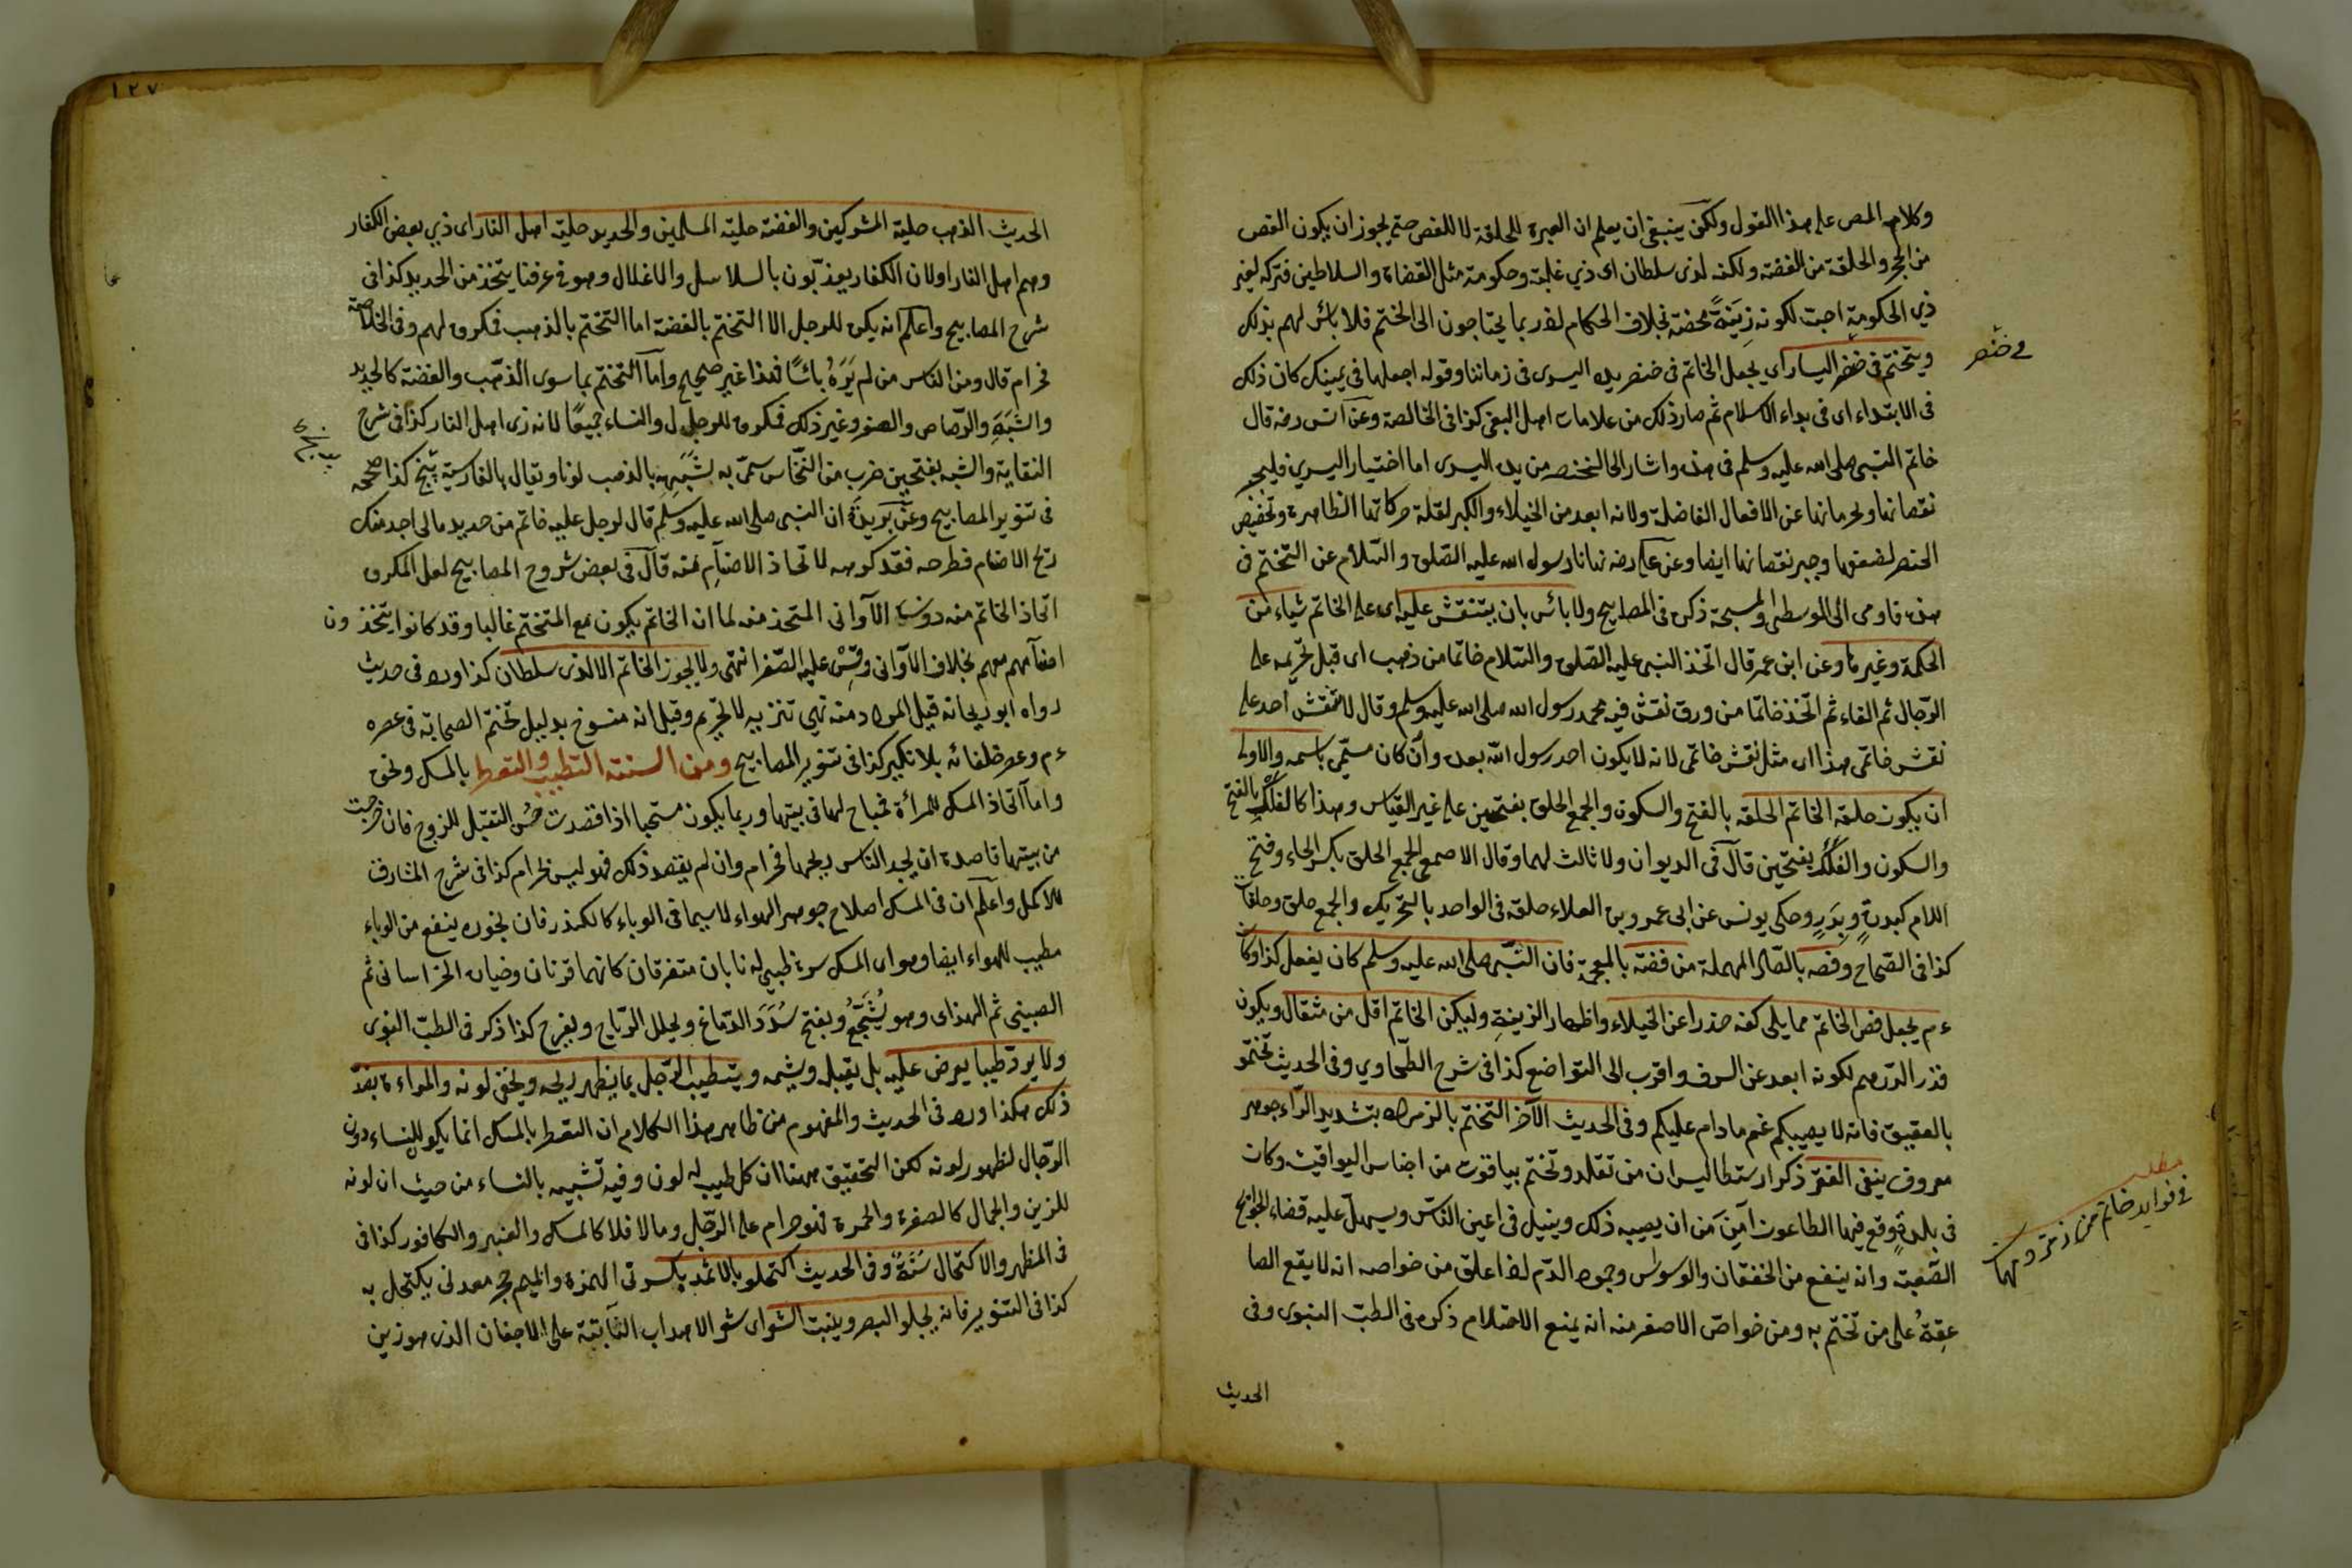 وكلام المص على هذا القول ولكن ينبغي ان يعلم ان العبرة للحلقة لا للفص حتى يجوز ان يكون الفص
من الحجر والحلقة من الفضة ولكنه لذى سلطان اى ذي غلبة وحكومة مثل القضاة والسلاطين فتركه لغير
ذي الحكومة احبّ لكونه زِينَةً محضة بخلاف الحكام لانه ربما يحتاجون الى الختم فلا بائس لهم بذلك
ويتختّم فى خنصر اليسار اى يجعل الخاتم فى خنصر يده اليسرى فى زماننا وقوله اجعلها فى يمينك كان ذلك
فى خنصر
فى الابتداء اى فى بداء الاسلام ثم صار ذلك من علامات اهل البغى كذا فى الخالصة وعن انس رضه قال
خاتم النبى صلى الله عليه وسلم فى هذه واشار الى الخنصر من يده اليسرى اما اختيار اليسرى فليجبر
نقصانها وحرمانها عن الافعال الفاضلة ولانه ابعد من الخيلاء والكبر لقلة حركاتها الظاهرة وتخصيص
الخنصر لضعفها وجبر نقصانها ايضا وعن على رضه نهانا رسول الله عليه الصّلوة والسّلام عن التختّم فى
هذه فاومى الى الوسطى والمسبحة ذكره فى المصابيح ولا بائس بان ينتقش عليه اى على الخاتم شياء من
الحكمة وغيرها وعن ابن عمر قال اتّخذ النبى عليه الصّلوة والسّلام خاتما من ذهب اى قبل تحريمه على
الرّجال ثم القاه ثم اتّخذ خاتما من ورق نقش فيه محمد رسول الله صلى الله عليه وسلم وقال لا ينقش احد على
نقش خاتمى هذا اى مثل نقش خاتمى لانه لا يكون احد رسول الله بعده وان كان مسمّى باسمه والاولى
ان يكون حلقة الخاتم الحلقه بالفتح والسكون والجمع الحلق بفتحتين على غير القياس وهذا كالفَلْك بالفتح
والسكون والفَلَك بفتحتين قال فى الديوان ولا ثالث لهما وقال الاصمعى الجمع الحلق بكسر الحاء وفتح
اللام كبدرةٍ وبِدَرٍ وحكى يونس عن ابى عمرو بن العلاء حلقة فى الواحد بالتحريك والجمع حلق وحلقات
كذا فى الصّحاح وفصه بالصّاد المهملة من فضة بالمعجمة فان النبّى صلى الله عليه وسلم كان يفعل كذا وكان
ءم يجعل فص الخاتم مما يلى كفه حذرا عن الخيلاء واظهار الزينةِ وليكن الخاتم اقل من مثقال ويكون
قدر الدرهم لكونه ابعد عن السرف واقرب الى التواضع كذا فى شرح الطّحاوي وفى الحديث تختّموْ
بالعقيق فانه لا يصيبكم غم ما دام عليكم وفى الحديث الآخر التختّم بالزمرد بتشديد الرّاء جوهر
معروف ينفى الفقر ذكر ارسطاليس ان من تقلد وتختّم بياقوت من اجناس اليواقيت وكان
فى بلدةٍ وقع فيها الطاعون آمِنَ مَن ان يصيبه ذلك وينبل فى اعين النّاس ويسهل عليه قضاء الحوائج
الصّعبة وانه ينفع من الخفقان والوسواس وجمود الدّم اذا علق من خواصه انه لا يقع الصا
عِقةُ على من تختّم به ومن خواصّ الاصفر منه انه يمنع الاحتلام ذكره فى الطبّ النبوى وفى
مطلب
فى فوايد خاتم من زمرد
الحديث
١٢٧
الحديث الذهب حلية المشركين والفضة حلية المسلمين والحديد حلية اهل النار اى ذي بعض الكفار
وهم اهل النار او لان الكفار يعذّبون بالسلاسل والاغلال وهو فى عرفنا يتّخذ من الحديد كذا فى
شرح المصابيح واعلم انه يكره للرجل الا التختم بالفضة اما التختم بالذهب فمكروه لهم وفى الخلاصة
فحرام قال ومن الناس من لم يَرَهُ بائسًا فهذا غير صحيح وامّا التختّم بما سوى الذّهب والفضة كالحديد
والشَّبَهِ والرّصاص والصفر وغير ذلك فمكروه للرجال والنساء جميعًا لانه زى اهل النار كذا فى شرح
النقاية والشبه بفتحتين ضرب من النّحاس سمّى به لشَبَهِهِ بالذهب لونا ويقال بالفارسية پرنج كذا صححه
فى تنوير المصابيح وعن بُرَيدة ان النبى صلى الله عليه وسلم قال لرجل عليه خاتم من حديد ما لى اجد منك
ريح الاصنام فطرحه فقد كرهه لاتّخاذ الاصنام منه قال فى بعض شروح المصابيح لعل المكروه
اتخاذ الخاتم منه دون الآوانى المتخذ منه لما ان الخاتم يكون مع المتختم غالبا وقد كانوا يتخذون
اصنآمهم معهم بخلاف الآوانى وقِسْ عليه الصّفر انتهى ولا يجوز الخاتم الا لذى سلطان كذا ورد فى حديث
رواه ابو ريحانه قيل المراد منه نهى تنزيه لا تحريم وقيل انه منسوخ بدليل تختّم الصحابة فى عصره
ءم وعصر خلفائه بلا نكير كذا فى تنوير المصابيح ومن السنة التطيب والتعطر بالمسك ونحوه
واما اتّخاذ المسك للمرأة فمباح لها فى بيتها وربما يكون مستحبا اذا قصدت حُسن التقبّل للزوج فان خرجت
من بيتها قاصدة ان يجد الناس ريحها فحرام وان لم يقصد ذلك فهو ليس بحرام كذا فى شرح المشارق
للاكمل واعلم ان فى المسك اصلاح جوهر الهواء لا سيما فى الوباء كالكندر فان بخوره ينفع من الوباء
مطيب للهواء ايضا وهو اى المسك سرة ظبى له نابان متفرقان كانهما قرنان وخياره الخراسانى ثم
الصينى ثم الهندى وهو يُشَجّعُ ويفتح سُدَدَ الدّماغ ويحلل الرّياح ويفرح كذا ذكر فى الطبّ النبوى
ولا يردّ طيبا يعرض عليه بل يقبله ويشمه ويتطيب الرّجل بما يظهر ريحه ويخفى لونه والمراءة بضدّ
ذلك هكذا ورد فى الحديث والمفهوم من ظاهر هذا الكلام ان التعطر بالمسك انما يكون للنساء دون
الرّجال لظهور لونه لكن التحقيق ههنا ان كل طيب له لون وفيه تشبيه بالنساء من حيث ان لونه
للزين والجمال كالصفرة والحمرة فهو حرام على الرّجل وما لا فلا كالمسك والعنبر والكافور كذا فى
فى المظهر والاكتحال سُنَّةٌ وفى الحديث اكتحلوا بالاثمد بكسرتى الهمزة والميم حجر معدنى يكتحل به
كذا فى التنوير فانه يجلو البصر وينبت الشعر اى شعر الاهداب النّابتة على الاجفان الذى هو زين